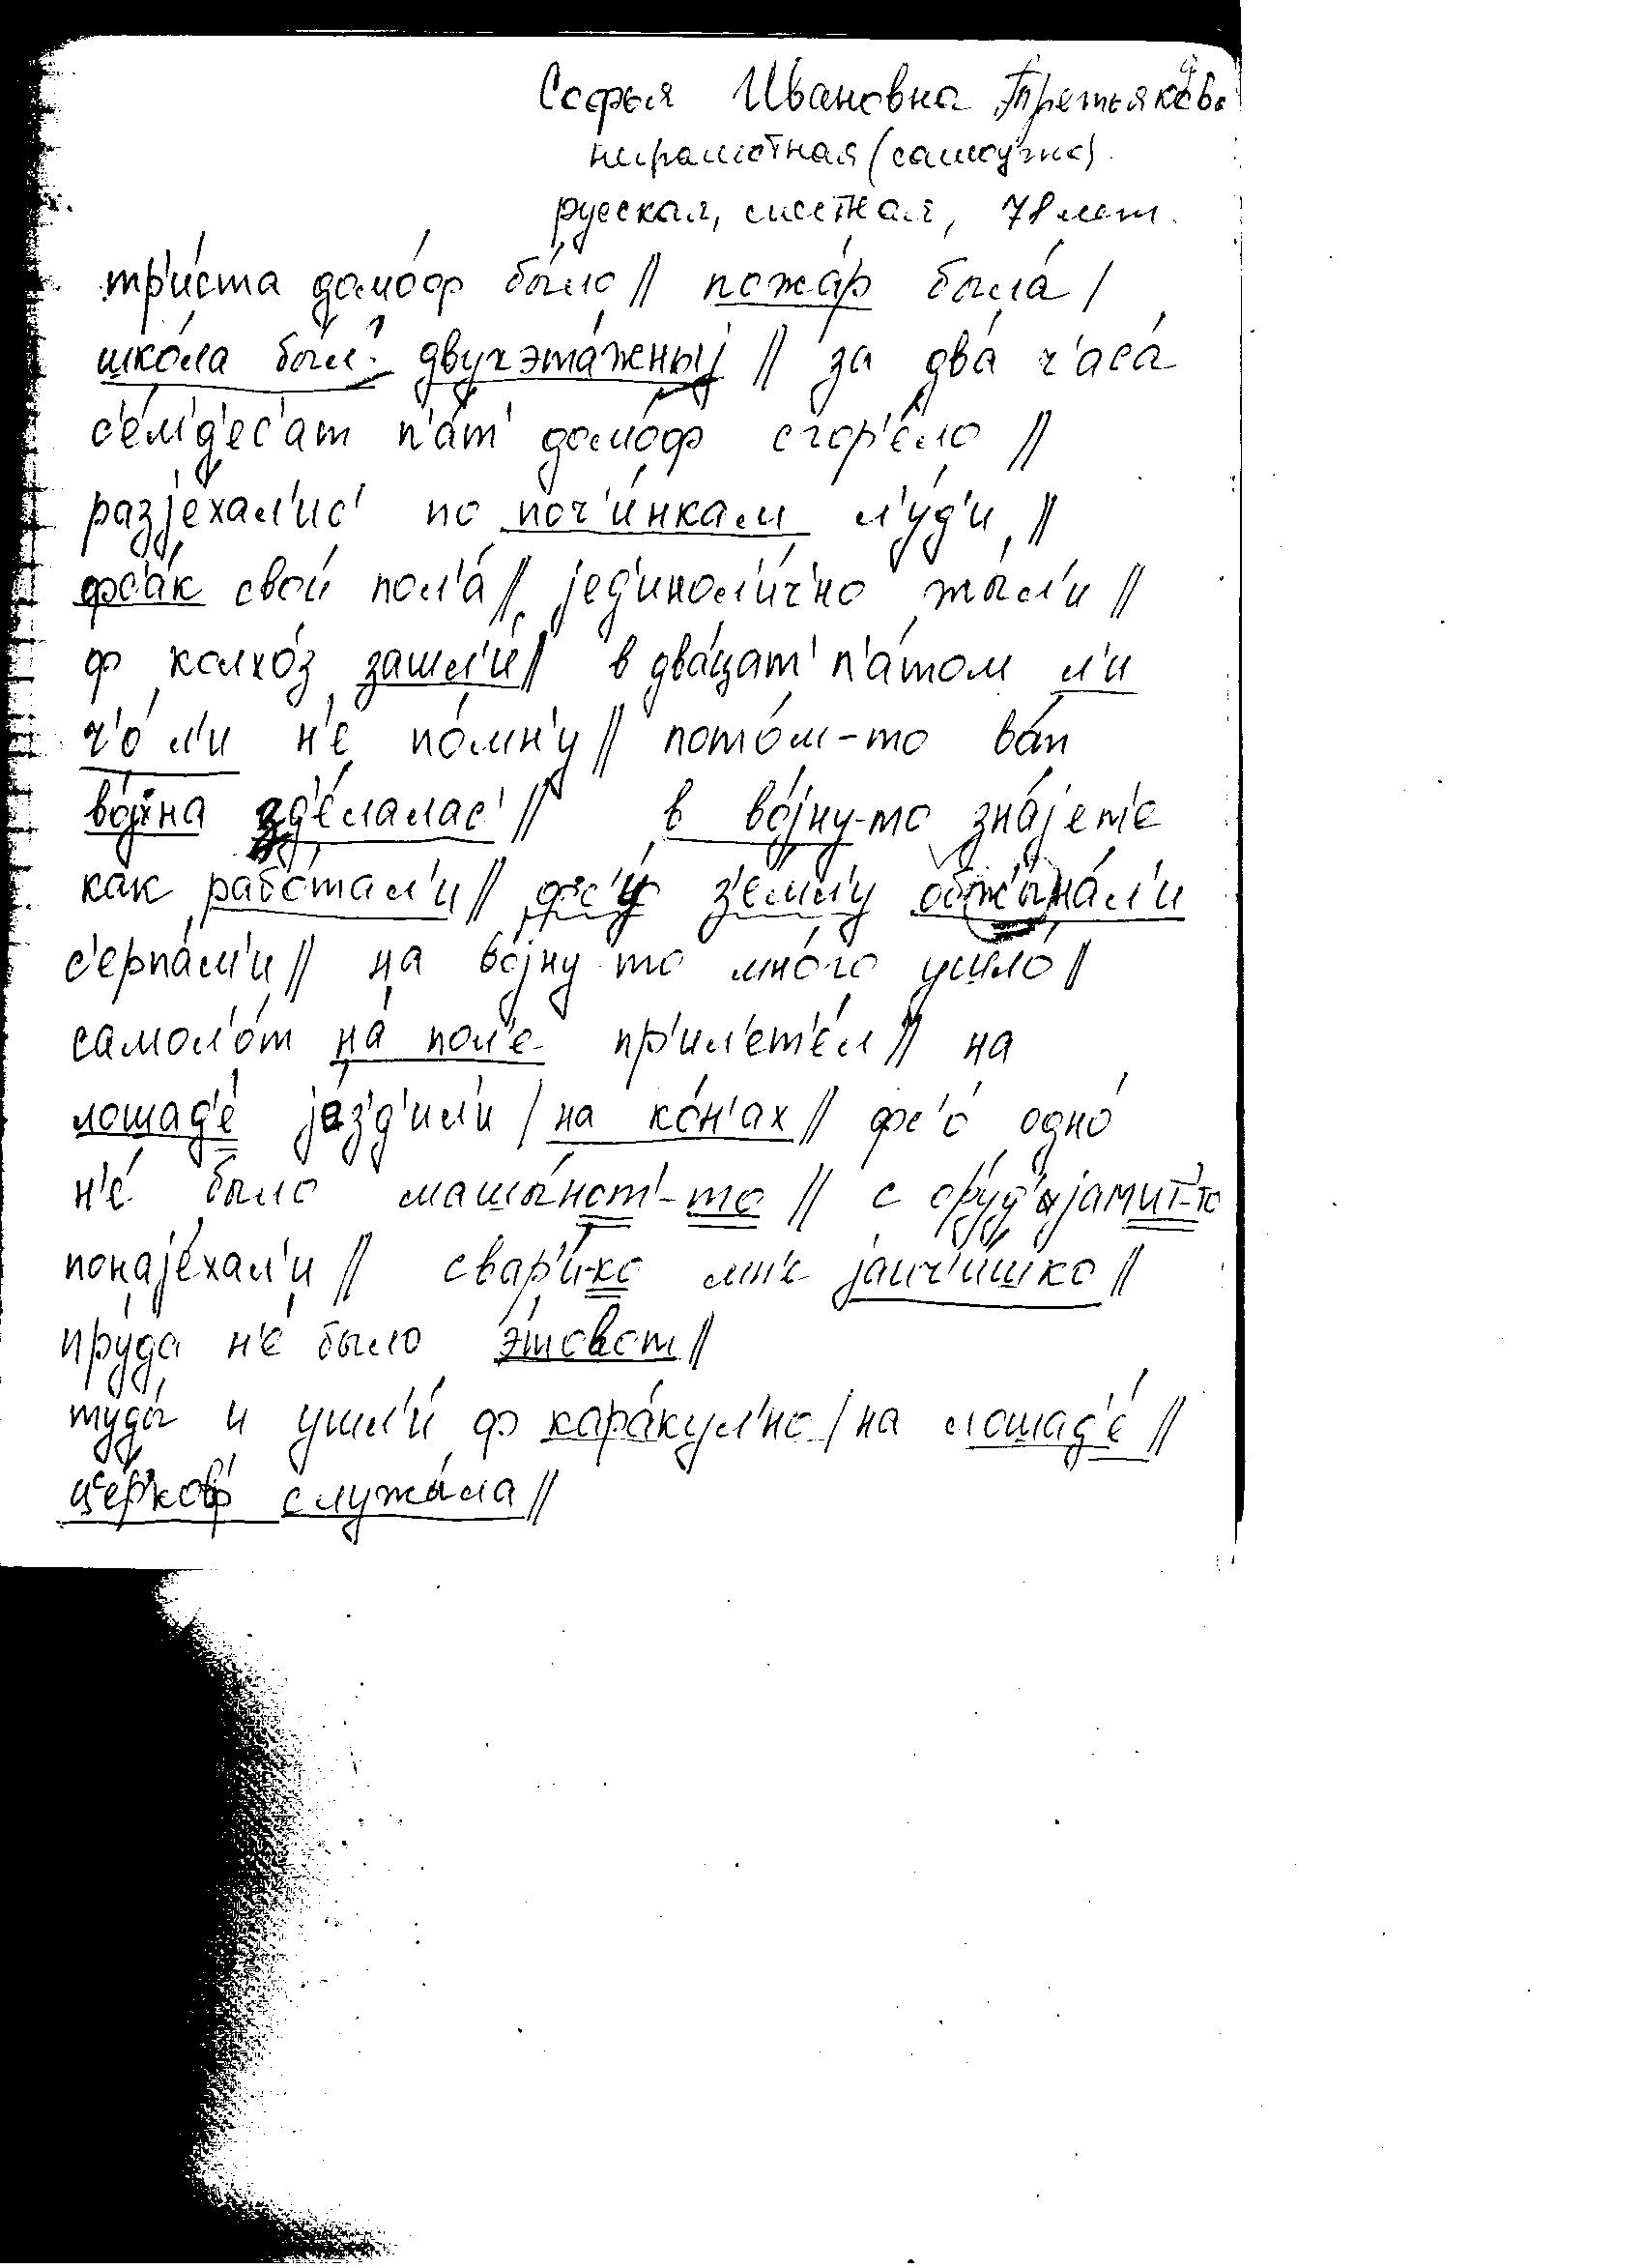 Софья Ивановна Третьякова
неграмотная (самоучка).
русская, местная, 78 лет.
тр'и́ста домо́ф бы́ло // пожа́р была́ /
шко́ла был двухэта́жныj // за два́ ч'аса́
с'е́м'д'ес'ат п'а́т' домо́ф сгор'е́ло //
разjе́хал'ис' по поч'и́нкам л'у́д'и //
фс'а́к свои́ пол'а́ // jед'инол'и́ч'но жы́л'и //
ф колхо́з зашл'и́ // в два́цат' п'а́том л'и
ч'о́ л'и н'е по́мн'у // пото́м-то во́т
во́jна зд'е́лалас' // в во́jну-то зна́jет'е
как рабо́тал'и // фс'у́ з'е́мл'у обжына́л'и
с'ерпа́м'и // на во́jну то мно́го ушло́ //
самол'о́т на́ пол'е пр'ил'ет'е́л // на
лошад'е́ jе́з'д'ил'и / на ко́н'ах // фс'о́ одно́
н'е́ было машы́нот'-то // с ору́д'иjамит'-то
понаjе́хал'и // свар'и́-ко мн'е jаич'и́шко //
пруда́ н'е́ было э́товот //
туды́ и ушл'и́ ф кара́кул'но / на лошад'е́ //
це́ркоф' служы́ла //